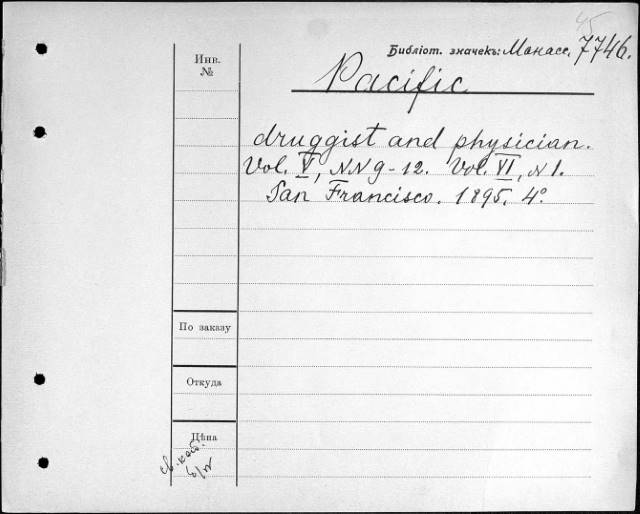 45
Библіот. значекъ: Манасс. 7746.
Инв.
№
Pacific
druggist and physician.
Vol. V, NN 9-12. Vol. VI, N 1.
San Francisco. 1895. 4°.
По заказу
Откуда
Цѣна
св. каб.